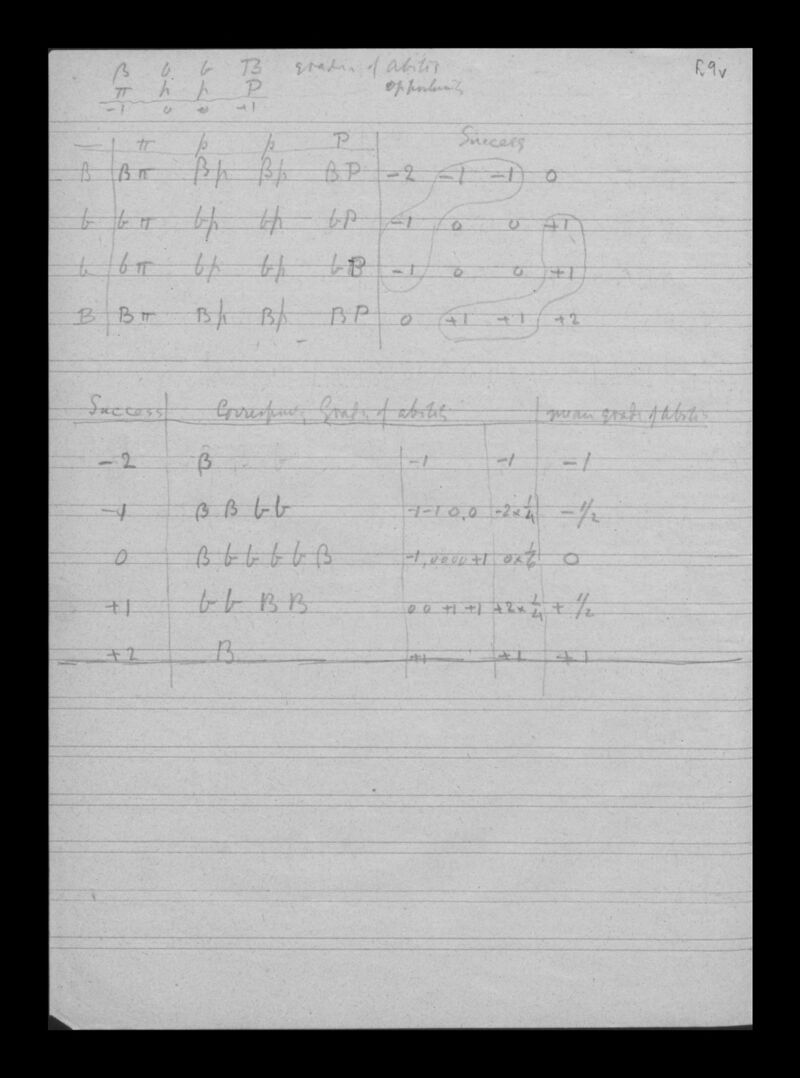 β b b B grades of ability f.9v
π p p P opportunity
-1 0 0 +1
— π p p P Success
β βπ βp βp βP -2 -1 -1 0
b bπ bp bp bP -1 0 0 +1
b bπ bp bp bP -1 0 0 +1
B Bπ Bp Bp BP 0 +1 +1 +2
Success Grades of ability mean grade of ability
-2 β -1 -1 -1
-1 β β b b -1 -1 0,0 -2×1/4 -1/2
0 β b b b b B -1,0000+1 0×1/6 0
+1 b b B B 0 0 +1 +1 +2×1/4 +1/2
+2 B +1 +1 +1